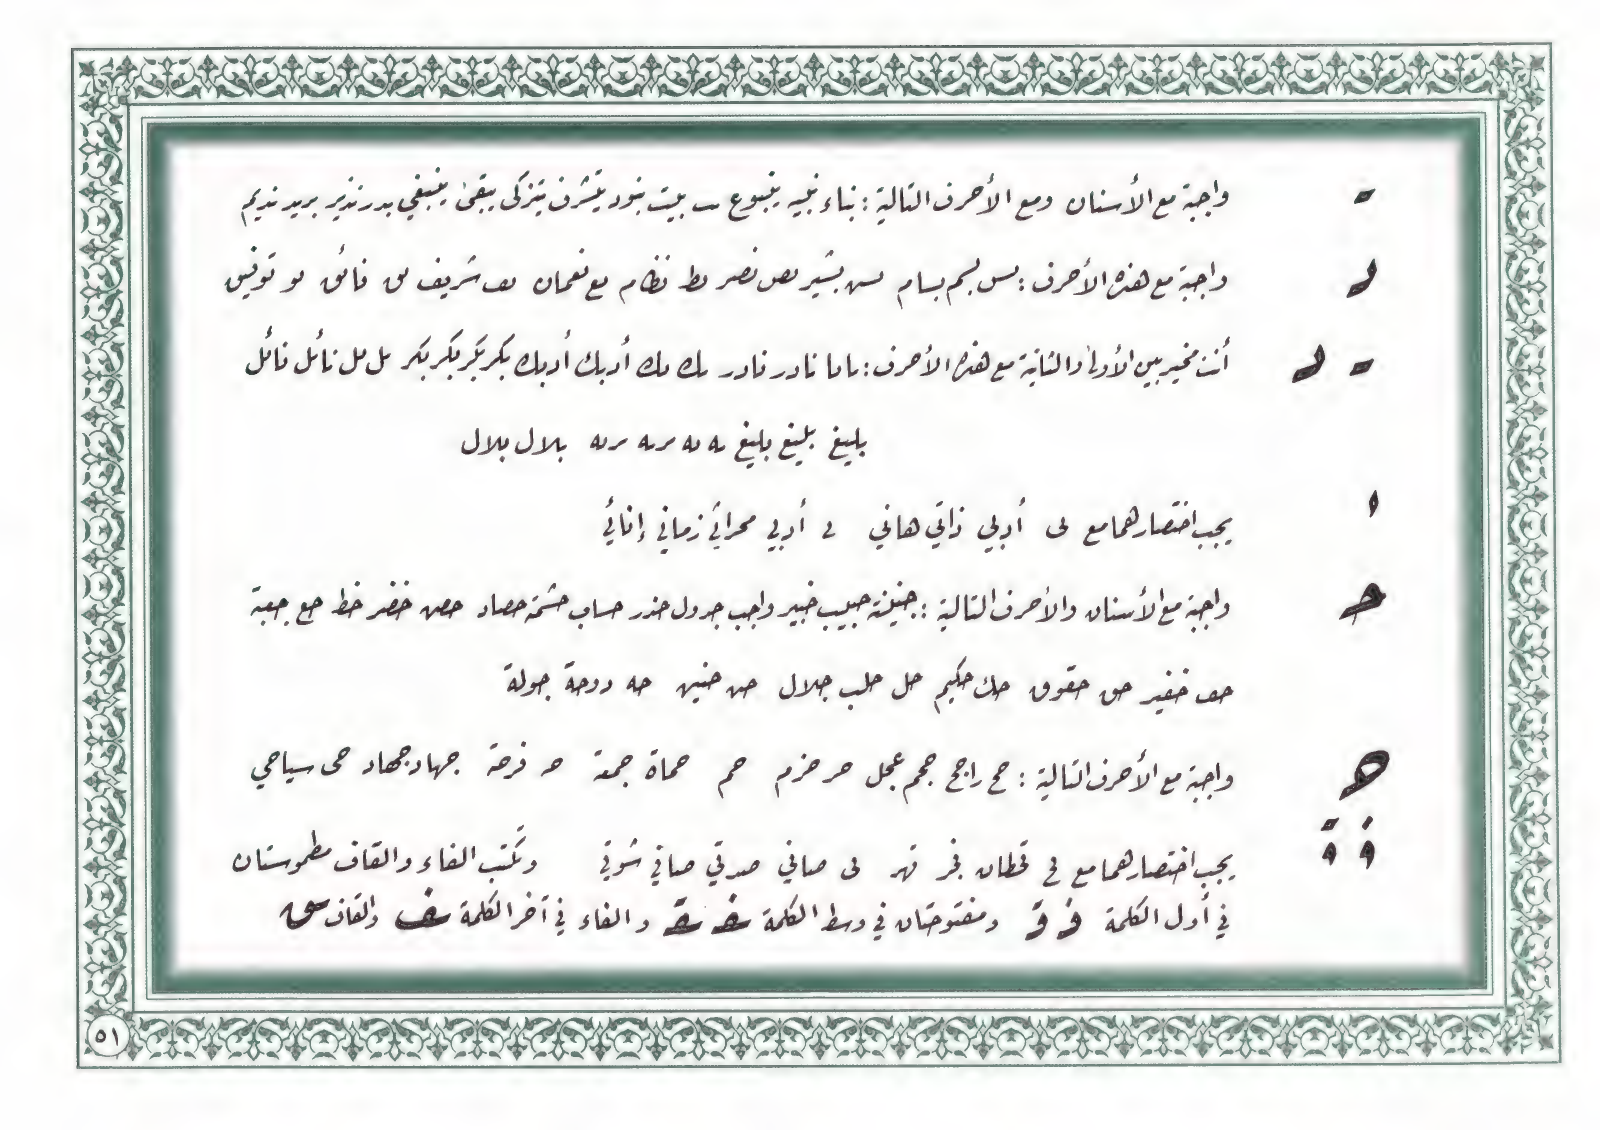 واجبة مع الأسنان ومع الأحرف التالية : بناء نبيه ينبوع ىٮ بيت بنود يتشرف يتزكى يبقى ينبغي بدر تدير بريد نديم
واجبة مع هذه الأحرف : ىس بسم بسام ىس بشير ىص نصر ىط نظام ىع نعمان ىف شريف ىق فائق ىو توفيق
أنت مخير بين الأولى والثانية مع هذه الأحرف : ىا ىا نادر نادر ىك ىك أدبك أدبك بكر بكر بكر بكر ىل ىل نائل نائل
بليغ بليغ بليغ ىه ىه مرىه مرىه بلال بلال
يجب اختصارهما مع ىى أدبي ذاتي هاني ىى أدبي محرابي زماني إنائي
واجبة مع الأسنان والأحرف التالية : جنينة حبيب خبير واجب جدول حذر حساب حشمة حصاد حص خضر خط جع جعبة
حف خفير حق حقوق حك حكيم حل حلب جلال حں حنين حه دوحة جولة
واجبة مع الأحرف التالية : حج راجح حجم عجل حر حزم حم حماة جمعة حه فرحة جهاد جهاد حى سياحي
يجب اختصارهما مع في قحطان فجر قهر ڡى صافي صدقي صافي شوقي وتكتب الفاء والقاف مطموستان
في أول الكلمة ف ق ومفتوحتان في وسط الكلمة ف ق والفاء في آخر الكلمة ف والقاف ق
٥١